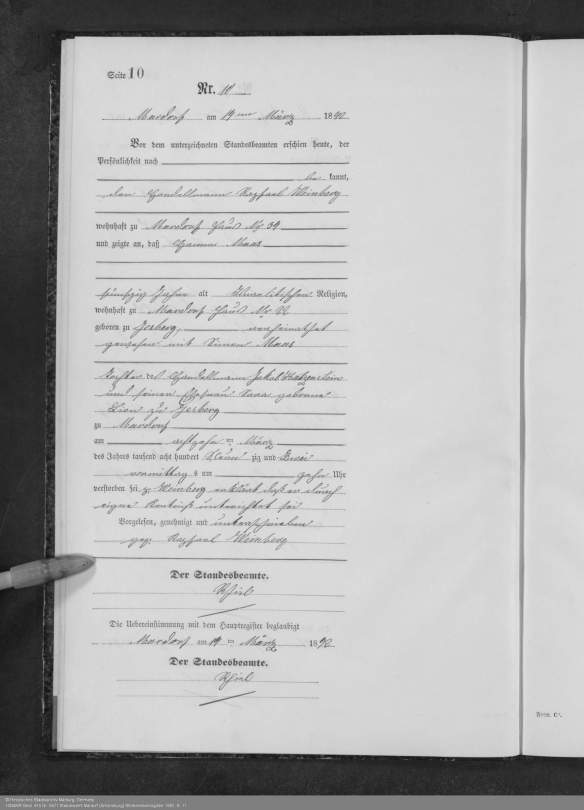 Seite 10
Nr. 10
Mardorf am 19ten März 1892
Vor dem unterzeichneten Standesbeamten erschien heute, der
Persönlichkeit nach
be kannt,
den Handelsmann Raphael Weinberg
wohnhaft zu Mardorf Haus No 39
und zeigte an, daß Maas
fünfzig Jahre alt Israelitischen Religion,
wohnhaft zu Mardorf Haus No 22
geboren zu Jesberg, verheirathet
gewesen mit Simon Maas
Tochter des Handelsmann Jakob Katzenstein
und seiner Ehefrau Sara geborene
zu Jesberg
zu Mardorf
am achtzehn ten März
des Jahres tausend acht hundert Neun zig und Zwei
vormittags um zehn Uhr
verstorben sei. Weinberg erklärt daß er durch
eigne Kentniß unterrichtet sei
Vorgelesen, genehmigt und unterschrieben
gez. Raphael Weinberg
Der Standesbeamte.
Die Uebereinstimmung mit dem Hauptregister beglaubigt
Mardorf am 19 ten März 1892
Der Standesbeamte.